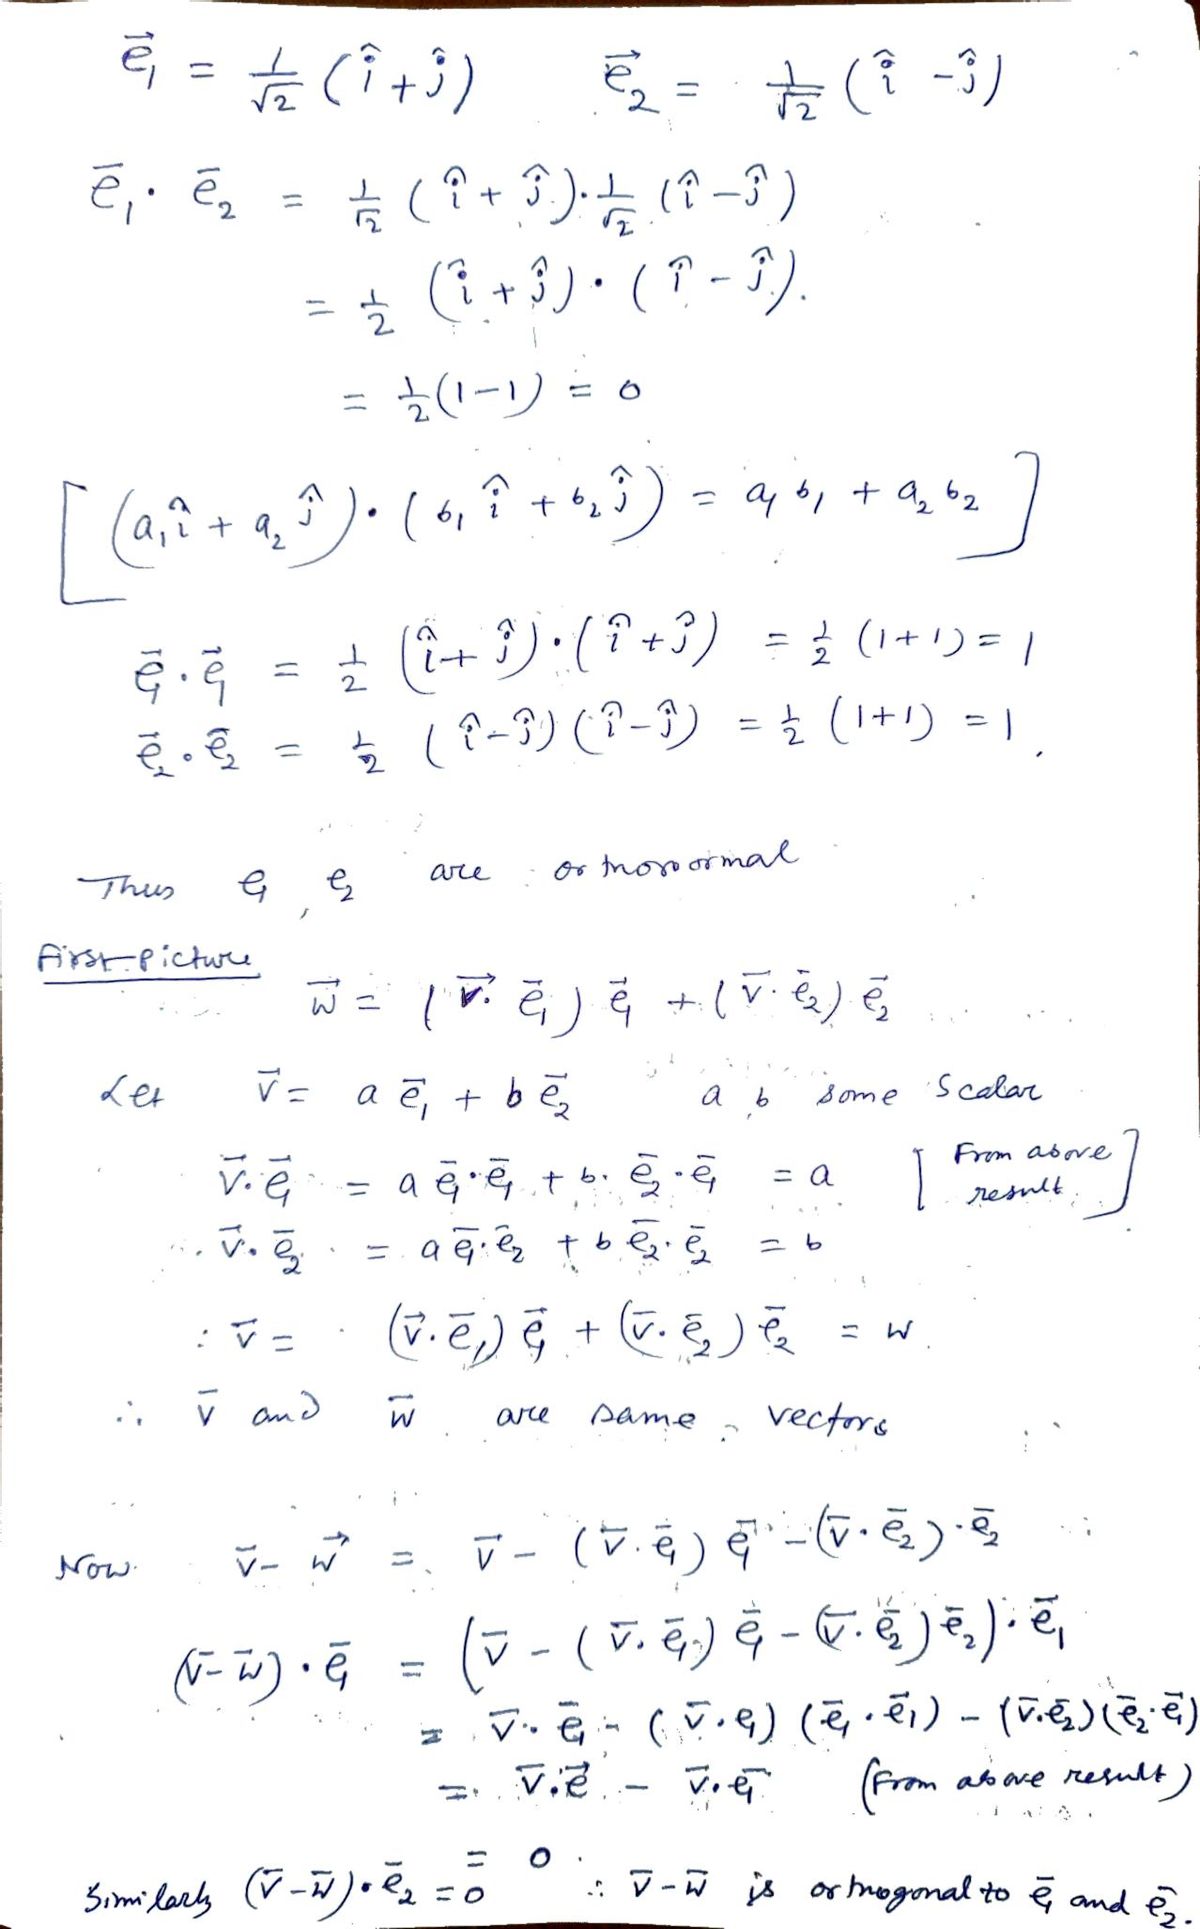 e⃗₁ = 1/√2 (î + ĵ)   e⃗₂ = 1/√2 (î - ĵ)
ē₁ · ē₂ = 1/√2 (î + ĵ) · 1/√2 (î - ĵ)
= 1/2 (î + ĵ) · (î - ĵ).
= 1/2 (1-1) = 0
[(a₁î + a₂ĵ) · (b₁î + b₂ĵ) = a₁b₁ + a₂b₂]
e⃗₁ · e⃗₁ = 1/2 (î + ĵ) · (î + ĵ) = 1/2 (1+1) = 1
ē₂ · ē₂ = 1/2 (î - ĵ) (î - ĵ) = 1/2 (1+1) = 1.
Thus e₁, e₂ are orthonormal
First picture
w⃗ = (v⃗ · ē₁) e⃗₁ + (v̄ · ē₂) ē₂
Let v⃗ = a ē₁ + b ē₂   a b some scalar
v⃗ · ē₁ = a ē₁ · ē₁ + b · ē₂ · ē₁ = a [From above result]
v⃗ · ē₂ = a ē₁ · ē₂ + b ē₂ · ē₂ = b
∴ v̄ = (v⃗ · ē₁) e⃗₁ + (v̄ · ē₂) ē₂ = w
∴ v̄ and w̄ are same vectors
Now v̄ - w⃗ = v̄ - (v̄ · ē₁) ē₁ - (v̄ · ē₂) · ē₂
(v̄ - w̄) · ē₁ = (v̄ - (v̄ · ē₁) ē₁ - (v̄ · ē₂) ē₂) · ē₁
= v̄ · ē₁ - (v̄ · e₁) (ē₁ · ē₁) - (v̄ · ē₂) (ē₂ · ē₁)
= v̄ · e⃗ - v̄ · ē₁ (From above result)
= 0
Similarly (v̄ - w̄) · ē₂ = 0 ∴ v̄ - w̄ is orthogonal to ē₁ and ē₂.